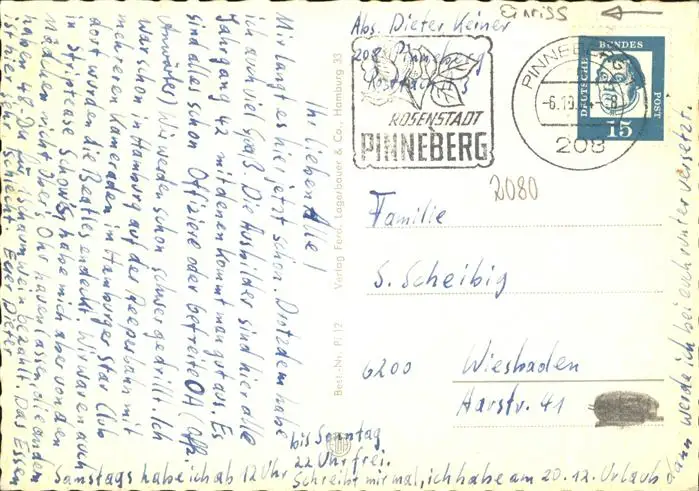 Einriss
Abs. Dieter Keiner
208 Pinneberg
Postfach
ROSENSTADT
PINNEBERG
PINNEBERG
-6.10
-8
208
DEUTSCHE
BUNDES
POST
15
2080
Familie
S. Scheibig
6200 Wiesbaden
Aarstr. 41
Verlag Ferd. Lagerbauer & Co., Hamburg 33
Best.-Nr. Pi 12
Ihr lieben Alle!
M. langt es hier jetzt schon. Trotzdem habe
ich auch viel Spaß. Die Ausbilder sind hier alle
Jahrgang 42 mit denen kommt man gut aus. Es
sind alles schon Offiziere oder Gefreite OA (Off.
Anwärter) Wir werden schon schwer gedrillt. Ich
war schon in Hamburg auf der Reeperbahn mit
mehreren Kameraden in Hamburger Star Club
dort wurden die Beatles endeckt. Wir waren auch
in Striptease Schow. Ich habe mich aber von den
Mädchen nicht über's Ohr hauen lassen, die anden
haben 48.- DM für Schaumwein bezahlt. Das Essen
ist hier sehr schlecht. Euer Dieter
Samstags habe ich ab 12 Uhr bis Sonntag
22 Uhr frei.
Schreibt mir mal, ich habe am 20.12. Urlaub
dann werde ich bei euch runter versetzt.